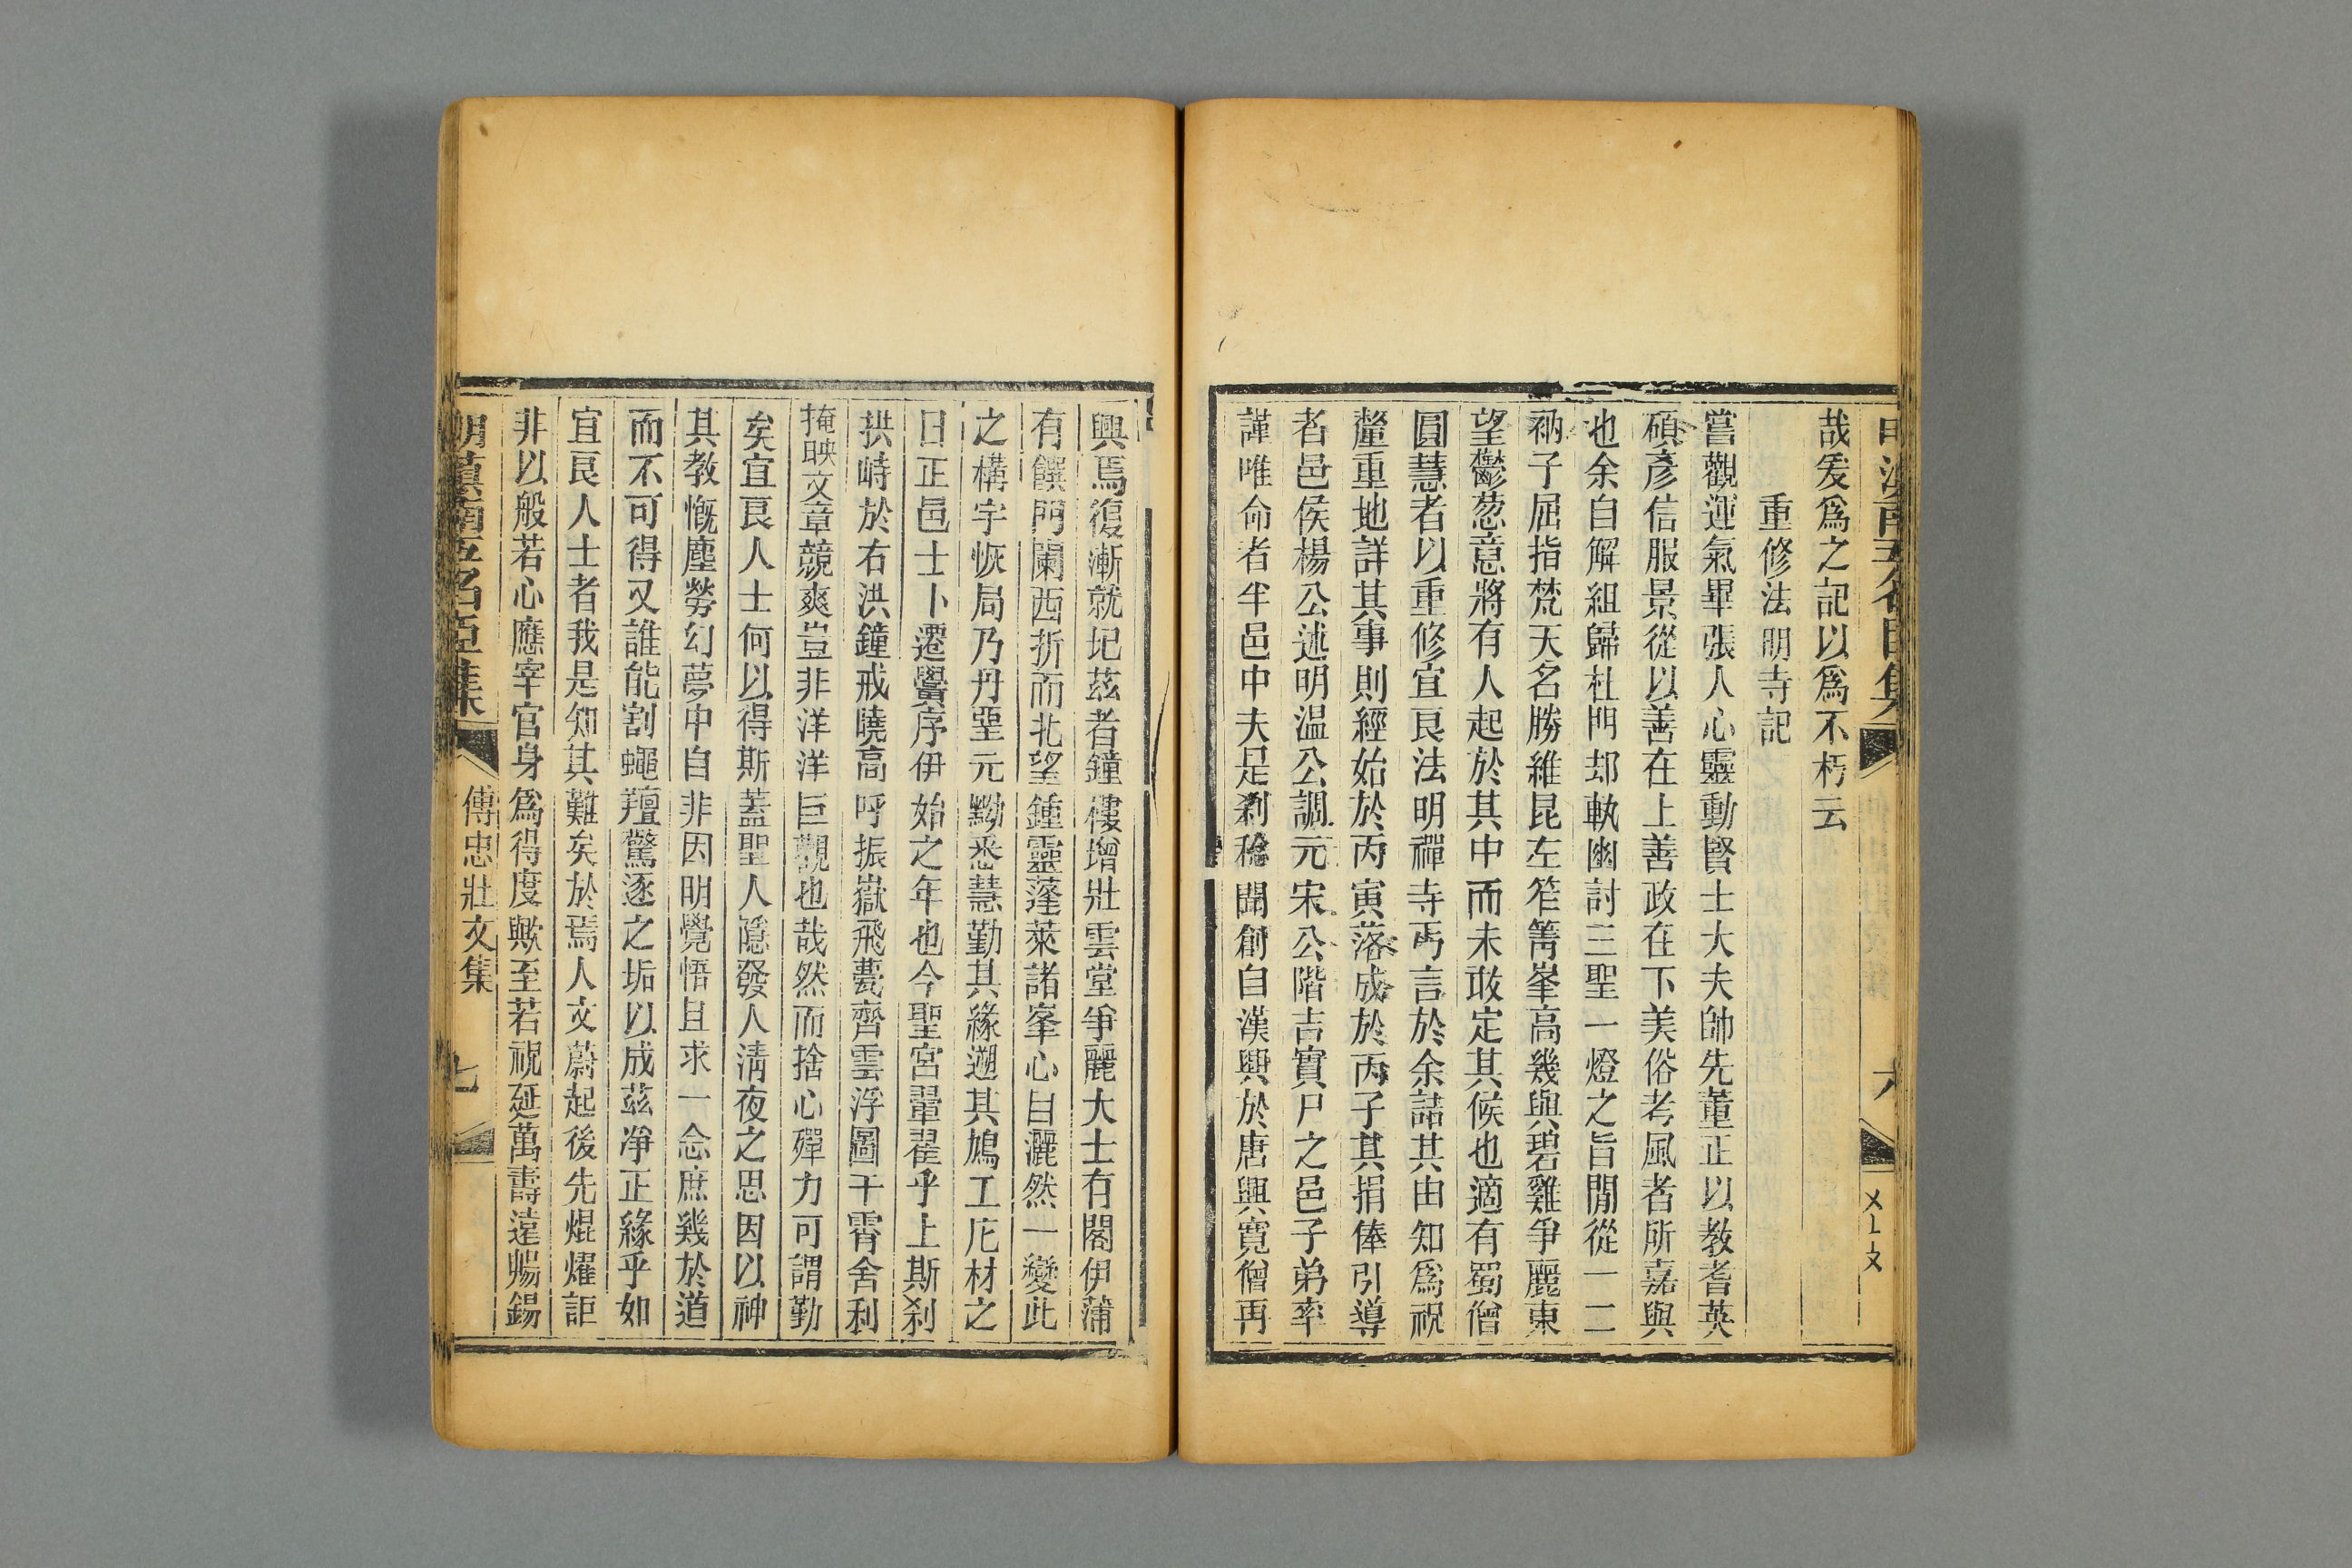 哉爰爲之記以爲不朽云
重修法明寺記
嘗觀運氣畢張人心靈動賢士大夫帥先董正以教耆英
碩彥信服景從以善在上善政在下美俗考風者所嘉與
也余自解組歸杜門却軌幽討三聖一燈之旨閒從一二
衲子屈指梵天名勝維昆左笮箐峯高幾與碧雞爭麗東
望鬱葱意將有人起於其中而未敢定其候也適有蜀僧
圓慧者以重修宜良法明禪寺丐言於余詰其由知爲祝
釐重地詳其事則經始於丙寅落成於丙子其捐俸引導
者邑侯楊公述明温公調元宋公階吉實尸之邑子弟率
謹唯命者半邑中夫是剎稔聞創自漢興於唐興寛僧再
興焉復漸就圮茲者鐘樓增壯雲堂爭麗大士有閣伊蒲
有饌門闌西折而北望鍾靈蓬萊諸峯心目灑然一變此
之構宇恢局乃丹堊元黝悉慧勤其緣遡其鳩工庀材之
日正邑士卜遷黌序伊始之年也今聖宮翬翟乎上斯剎
拱峙於右洪鐘戒曉高呼振嶽飛甍齊雲浮圖干霄舍利
掩映文章競爽豈非洋洋巨觀也哉然而捨心殫力可謂勤
矣宜良人士何以得斯蓋聖人隱發人清夜之思因以神
其教慨塵勞幻夢中自非因明覺悟且求一念庶幾於道
而不可得又誰能割蠅羶驚逐之垢以成茲凈正緣乎如
宜良人士者我是知其難矣於焉人文蔚起後先焜燿詎
非以般若心應宰官身爲得度歟至若祝延萬壽遠暢錫
明滇南五名臣集
傅忠壯文集
七